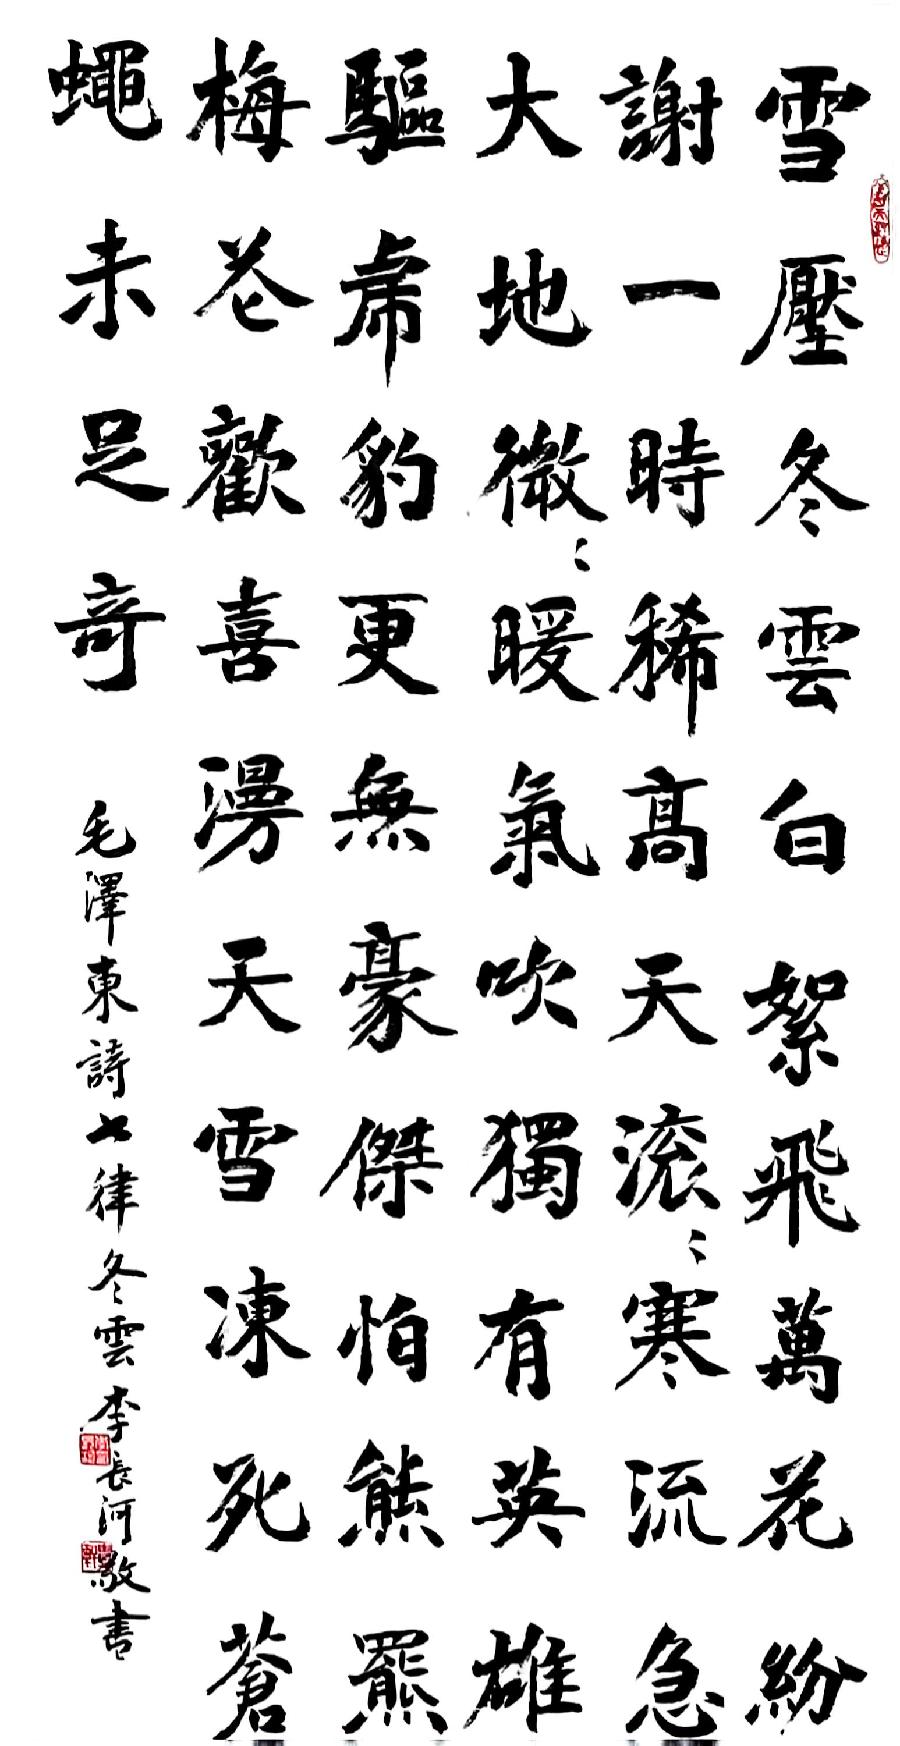 雪壓冬雲白絮飛萬花紛
謝一時稀高天滾〻寒流急
大地微〻暖氣吹獨有英雄
驅虎豹更無豪傑怕熊羆
梅花歡喜漫天雪凍死蒼
蠅未足奇
毛澤東詩七律冬雲李長河敬書